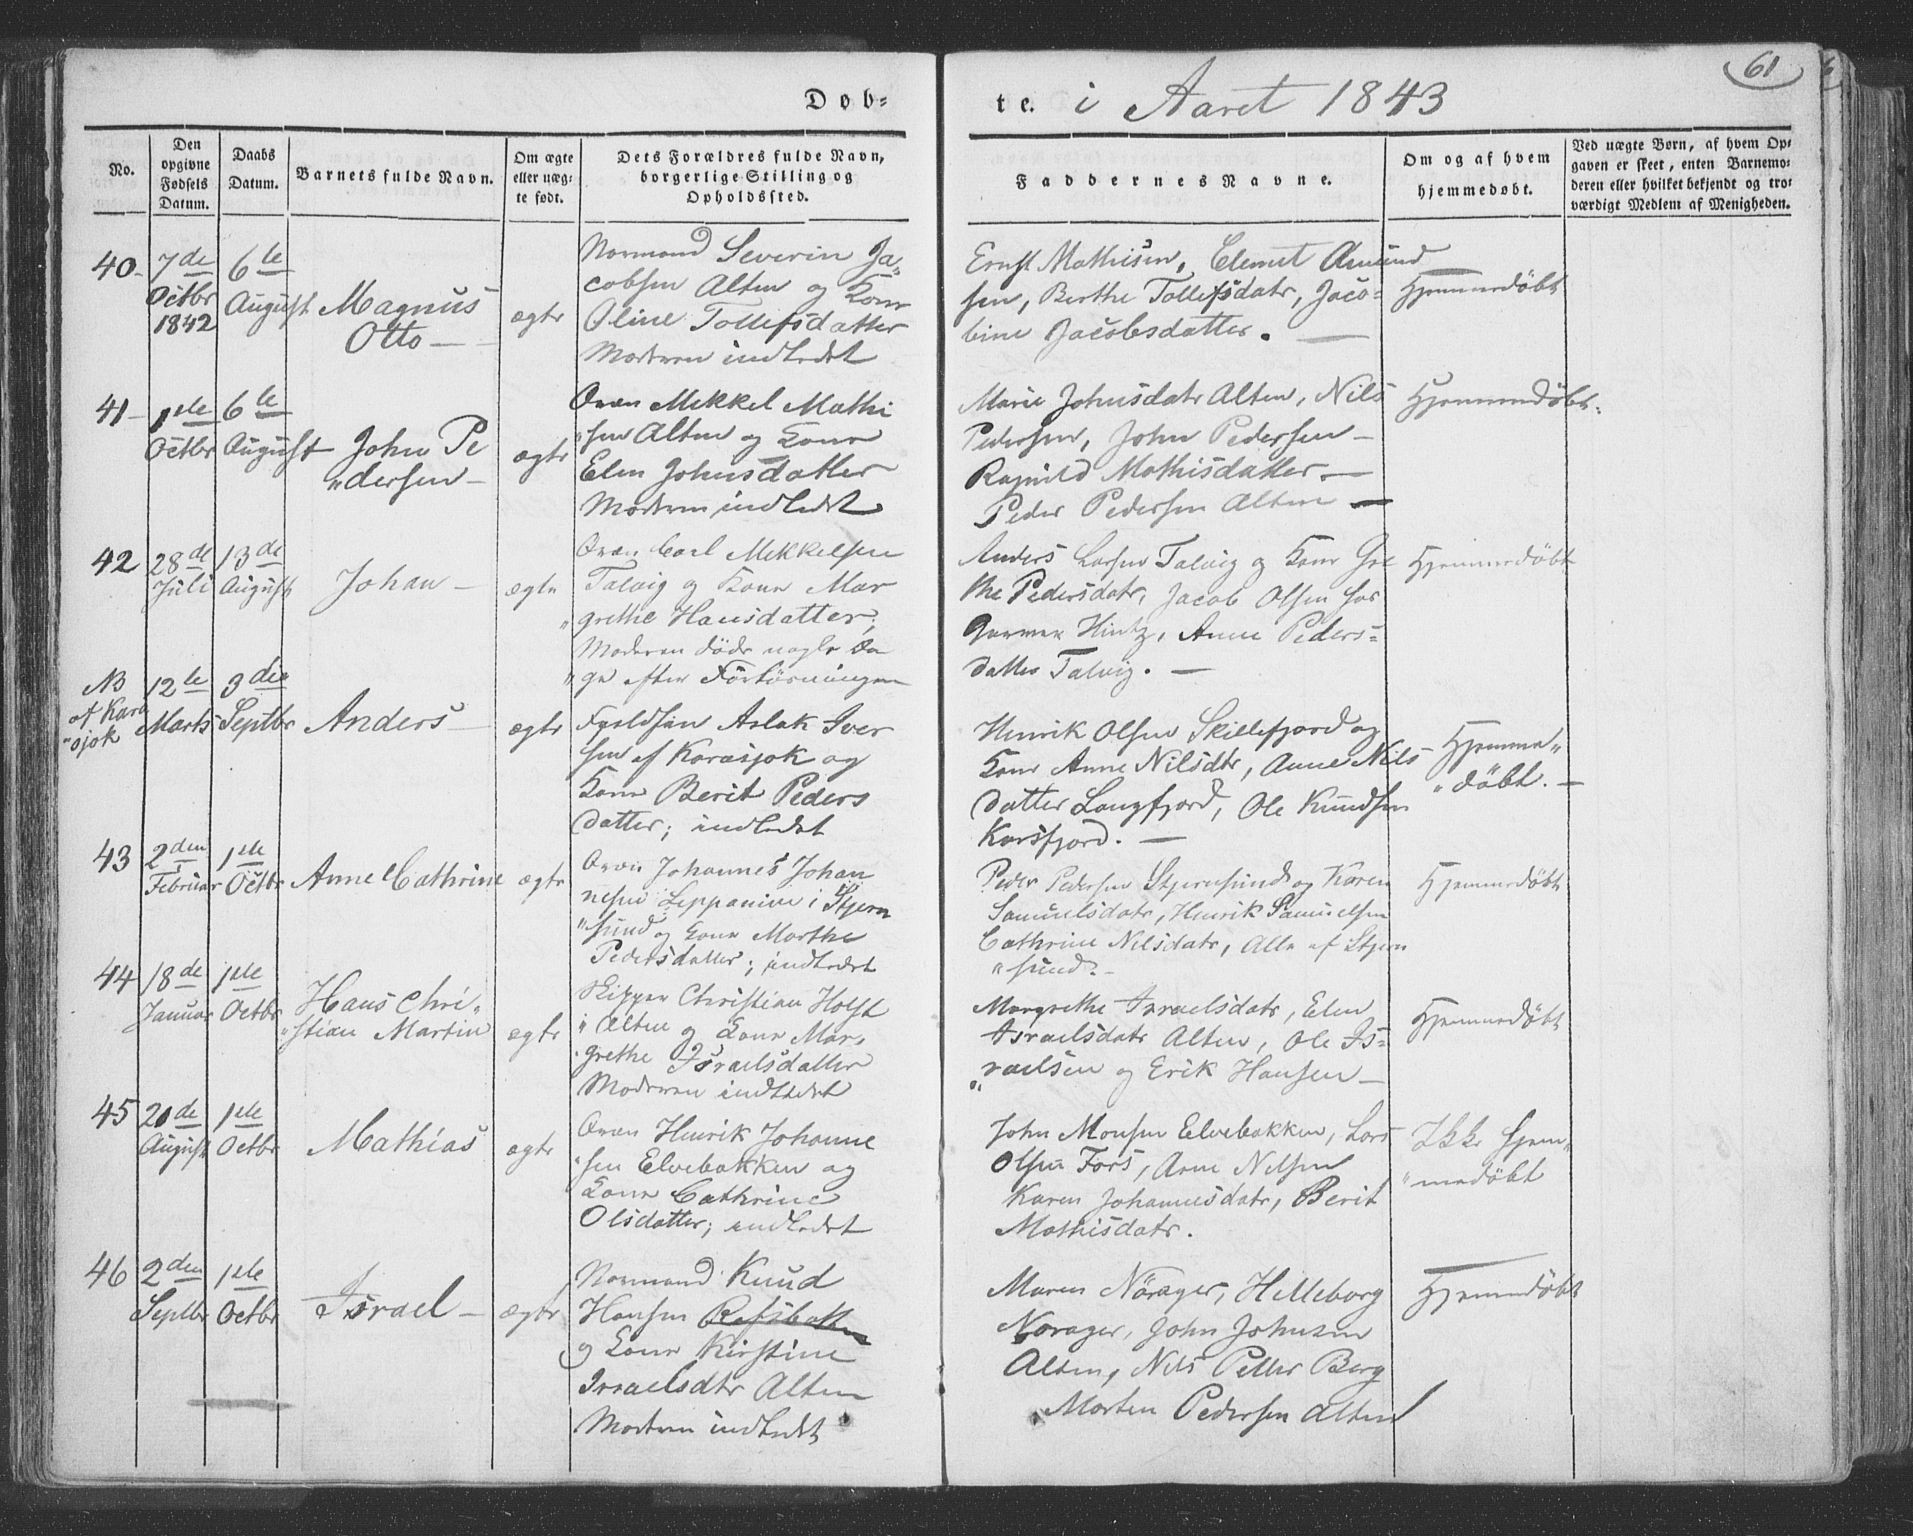 61
Døb-
te. i Aaret 1843
No.
Den opgivne Fødsels Datum.
Daabs Datum.
Barnets fulde Navn.
Om ægte eller uæg-te født.
Dets Forældres fulde Navn, borgerlige Stilling og Opholdssted.
Faddernes Navne.
Om og af hvem hjemmedøbt.
Ved uægte Børn, af hvem Op-
gaven er skeet, enten Barnemo-
deren eller hvilket bekjendt og tro-
værdigt Medlem af Menigheden.
40-
7de
Octbr
1842
6te
August
Magnus
Otto —
ægte
Normand Severin Ja-
cobsen Alten og Kone
Oline Tollefsdatter
Moderen indledet
Ernst Mathisen, Clemet Amund
sen, Berthe Tollefsdatr, Jaco-
bine Jacobsdatter. —
Hjemmedøbt
41-
1ste
Octbr
6te
August
John Pe
"dersen —
ægte
Qvæn Mekkel Mathi
"sen Alten og Kone
Elen Johnsdatter
Moderen indledet
Marie Johnsdatr Alten, Nils
Pedersen, John Pedersen —
Ragnild Mathisdatter. —
Peder Pedersen Alten —
Hjemmedøbt.
42
28de
Juli
13de
August
Johan —
ægte
Qvæn Carl Mekkelsen
Talvig og Kone Mar
"grethe Hansdatter;
Moderen døde nogle Da
"ge efter Forløsningen
Anders Larsen Talvig og Kone Gre
the Pedersdatr, Jacob Olsen hos
Hintz, Anne Peders-
datter Talvig. —
Hjemmedøbt
NB
af Kara
"sjok
12te
Marts
3die
Septbr
Anders —
ægte
Fjeldfin Aslak Iver
sen af Karasjok og
Kone Berit Peders
datter; indledet
Henrik Olsen Skillefjord og
Kone Anne Nilsdtr, Anne Nils
datter Langfjord, Ole Knudsen
Korsfjord. —
Hjemme"
"døbt. —
43
2den
Februar
1ste
Octbr
Anne Cathrine
ægte
Qvæn Johannes Johan
nesen Leppanive i Stjern
"sund og Kone Marthe
Pedersdatter; indledet
Peder Pedersen Stjernsund og Karen
Samuelsdatr, Henrik Samuelsen
Cathrine Nilsdatr, Alle af Stjern
"sund. —
Hjemmedøbt
44
18de
Januar
1ste
Octbr
Hans Chri"
"stian Martin
ægte
Skipper Christian Holst
i Alten og Kone Mar-
grethe Israelsdatter
Moderen indledet
Margrethe Israelsdatr, Elen
Israelsdatr Alten, Ole Is-
"raelsen og Erik Hansen —
Hjemmedøbt
45
20de
August
1ste
Octbr
Mathias
ægte
Qvæn Henrik Johanne
"sen Elvebakken og
Kone Cathrine
Olsdatter; indledet
John Monsen Elvebakken, Lars
Olsen Fors, Arne Nilsen
Karen Johannesdatr, Berit
Mathisdatr.
Ikke hjem-
"medøbt
46
2den
Septbr
1ste
Octbr
Israel —
ægte
Normand Knud
Hansen Refsbotten
og Kone Kirstine
Israelsdtr Alten
Moderen indledet
Maren Nørager, Hilleborg
Norager, John Johnsen
Alten, Nils Petter Berg
Morten Pedersen Alten
Hjemmedøbt